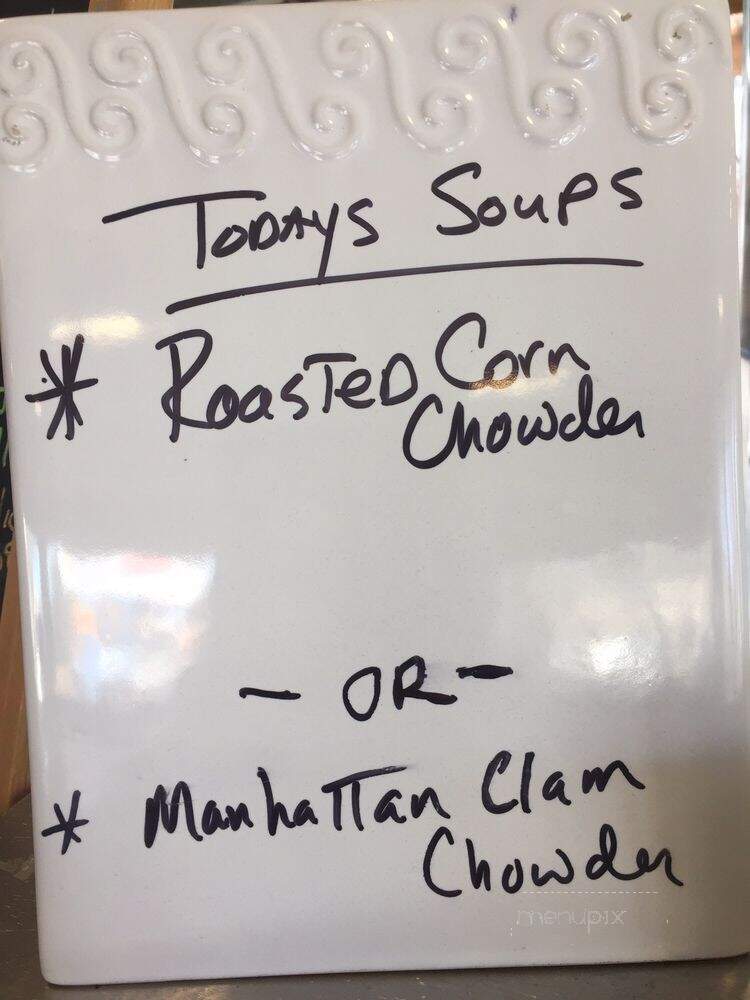 TODAYS SOUPS
* ROASTED Corn
Chowder
- OR -
* Manhattan Clam
Chowder
menupix